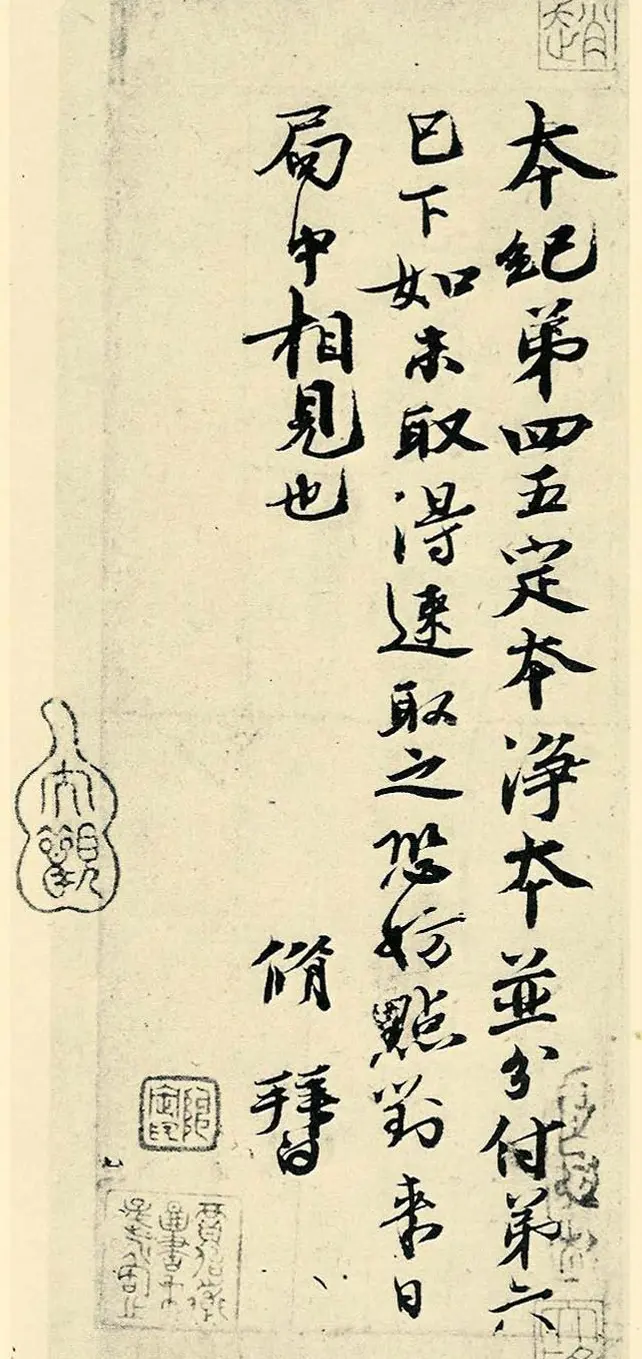 本紀第四五定本淨本並分付第六
已下如未取得速取之恐妨點對來日
局中相見也
脩 拜白